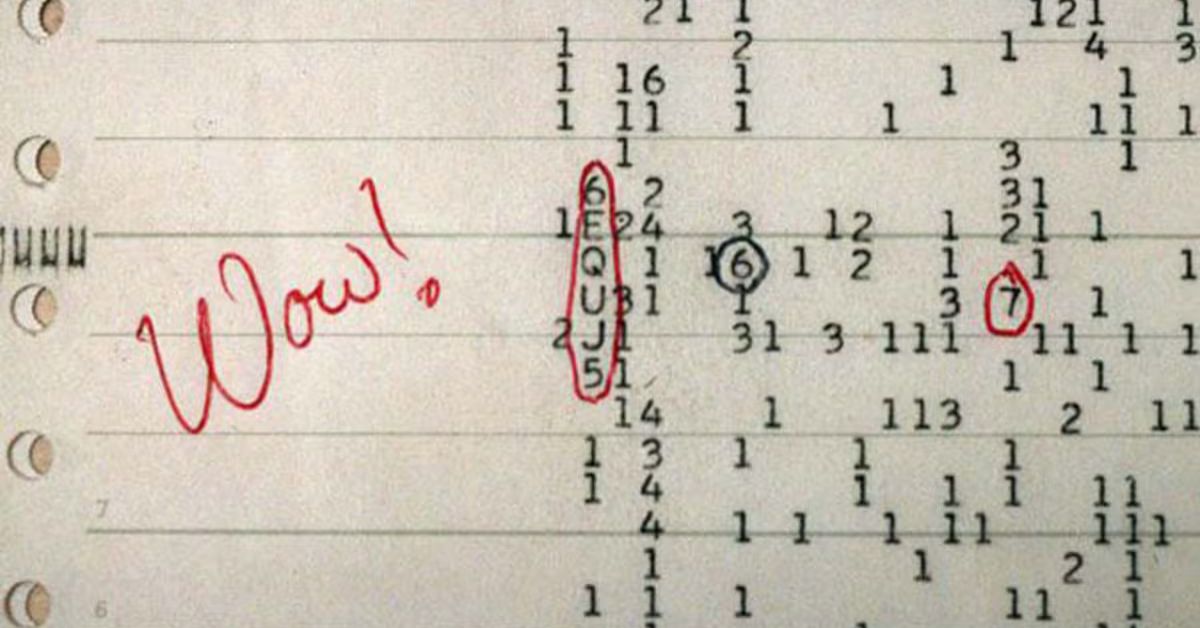 21 1 121 1
1 2 1 4 3
1 16 1 1 1
1 11 1 1 11 1
1 3 1
6 2 31
1 E 24 3 12 1 21 1
Q 1 16 1 2 1 1 1
U 31 1 3 7 1
2 J 1 31 3 111 11 1 1
5 1 1 1
14 1 113 2 11
1 3 1 1 1
1 4 1 1 1 11
7
4 1 1 1 11 111
1 1 2 1
6 1 1 1 11 1
Wow!